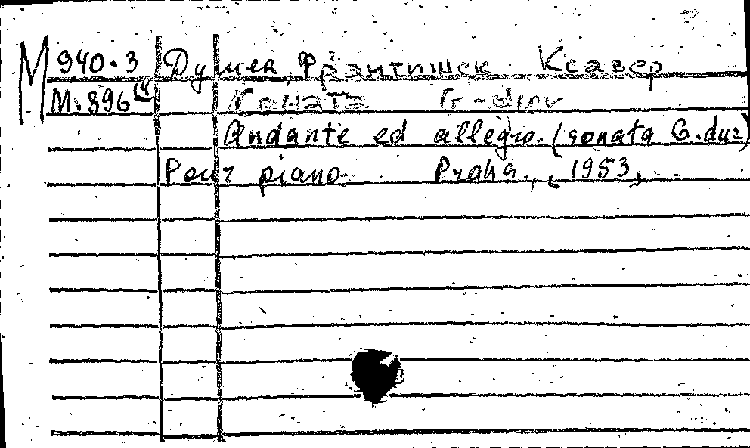 М 940.3 Душек, Франтишек Ксавер
М. 896 Соната G-dur
Andante ed allegro. (sonata G.dur)
Pour piano. Praha., 1953,